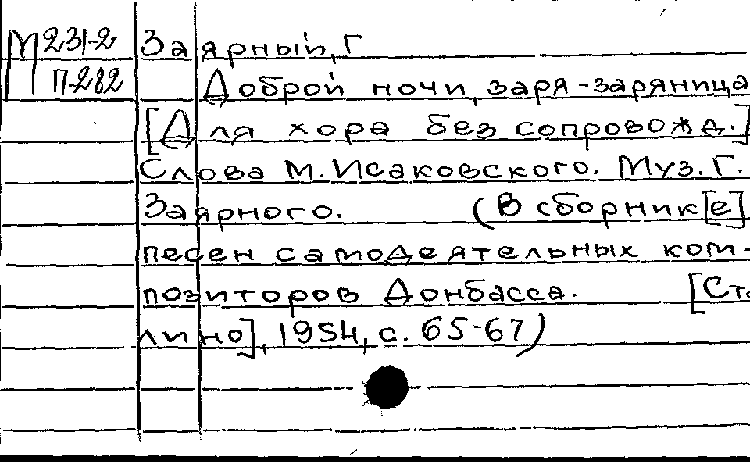 М 231-2 Заярный, Г
П-282 Доброй ночи, заря-заряница
[Для хора без сопровожд.]
Слова М. Исаковского. Муз. Г.
Заярного. (В сборник[е]
песен самодеятельных ком-
позиторов Донбасса. [Ста
лино], 1954, с. 65-67)